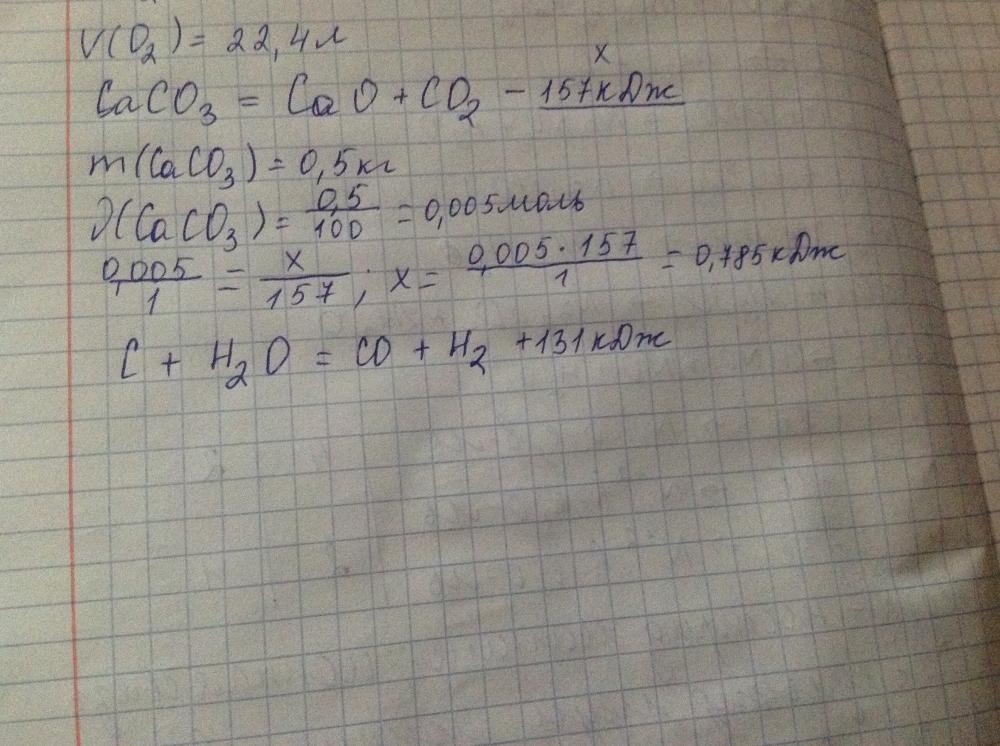 V(O₂) = 22,4л
x
CaCO₃ = CaO + CO₂ - 157кДж
m(CaCO₃) = 0,5кг
∂(CaCO₃) = 0,5/100 = 0,005моль
0,005/1 = x/157 ; x = 0,005·157/1 = 0,785кДж
C + H₂O = CO + H₂ +131кДж